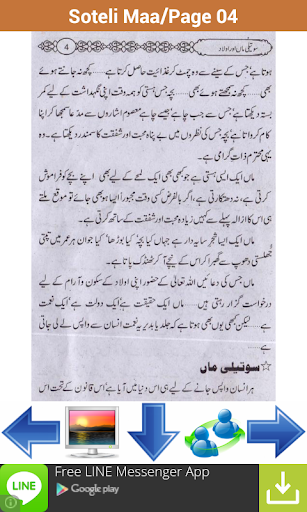 Soteli Maa/Page 04
4
سوتیلی ماں اور اولاد
ہوتا ہے' جس کے سینے سے وہ چمٹ کر غذائیت حاصل کرتا ہے.....کچھ نہ جانتے ہوئے
بھی.....کچھ نہ سمجھتے ہوئے بھی.....بچہ جس ہستی کو ہمہ وقت اپنی نگہداشت کے لیے کمر
بستہ دیکھتا ہے' جس سے جب چاہے' جیسے چاہے' معصوم اشاروں سے مدعا سمجھا کر اپنا
کام کروا تا ہے.....جس کی نظروں میں بے پناہ محبت اور شفقت کا سمندر دیکھتا ہے۔ وہ
یہی محترم ذات گرامی ہے۔
ماں ایک ایسی ہستی ہے جو بھی بھی ایک لمحے کے لیے بھی اپنے بچے کو فراموش
کرتی ہے، نہ دھتکارتی ہے، اگر بالفرض کسی وقت مجبوراً ایسا ہو بھی جائے تو موقع ملتے
ہی اس کا ازالہ پہلے سے کہیں زیادہ محبت اور شفقت کے ساتھ کرتی ہے۔
ماں ایک ایسا شجر سایہ دار ہے جہاں کیا بچہ' کیا بوڑھا' کیا جوان ہر عمر میں تپتی
جھلستی دھوپ سے گھبرا کر اس کے نیچے آ کر ٹھنڈک پاتا ہے۔
ماں جس کی دعائیں اللہ تعالیٰ کے حضور اپنی اولاد کے سکون و آرام کے لیے
درخواست گزار رہتی ہیں.....ماں ایک حقیقت ہے' ایک دولت ہے' ایک نعمت
ہے.....لیکن کبھی یوں بھی ہوتا ہے کہ جلد یا بدیر یہ نعمت انسان سے واپس لے لی جاتی
ہے۔
سوتیلی ماں
ہر انسان واپس جانے کے لیے ہی اس دنیا میں آیا ہے' اس قانون کے تحت اس
LINE
Free LINE Messenger App
Google play